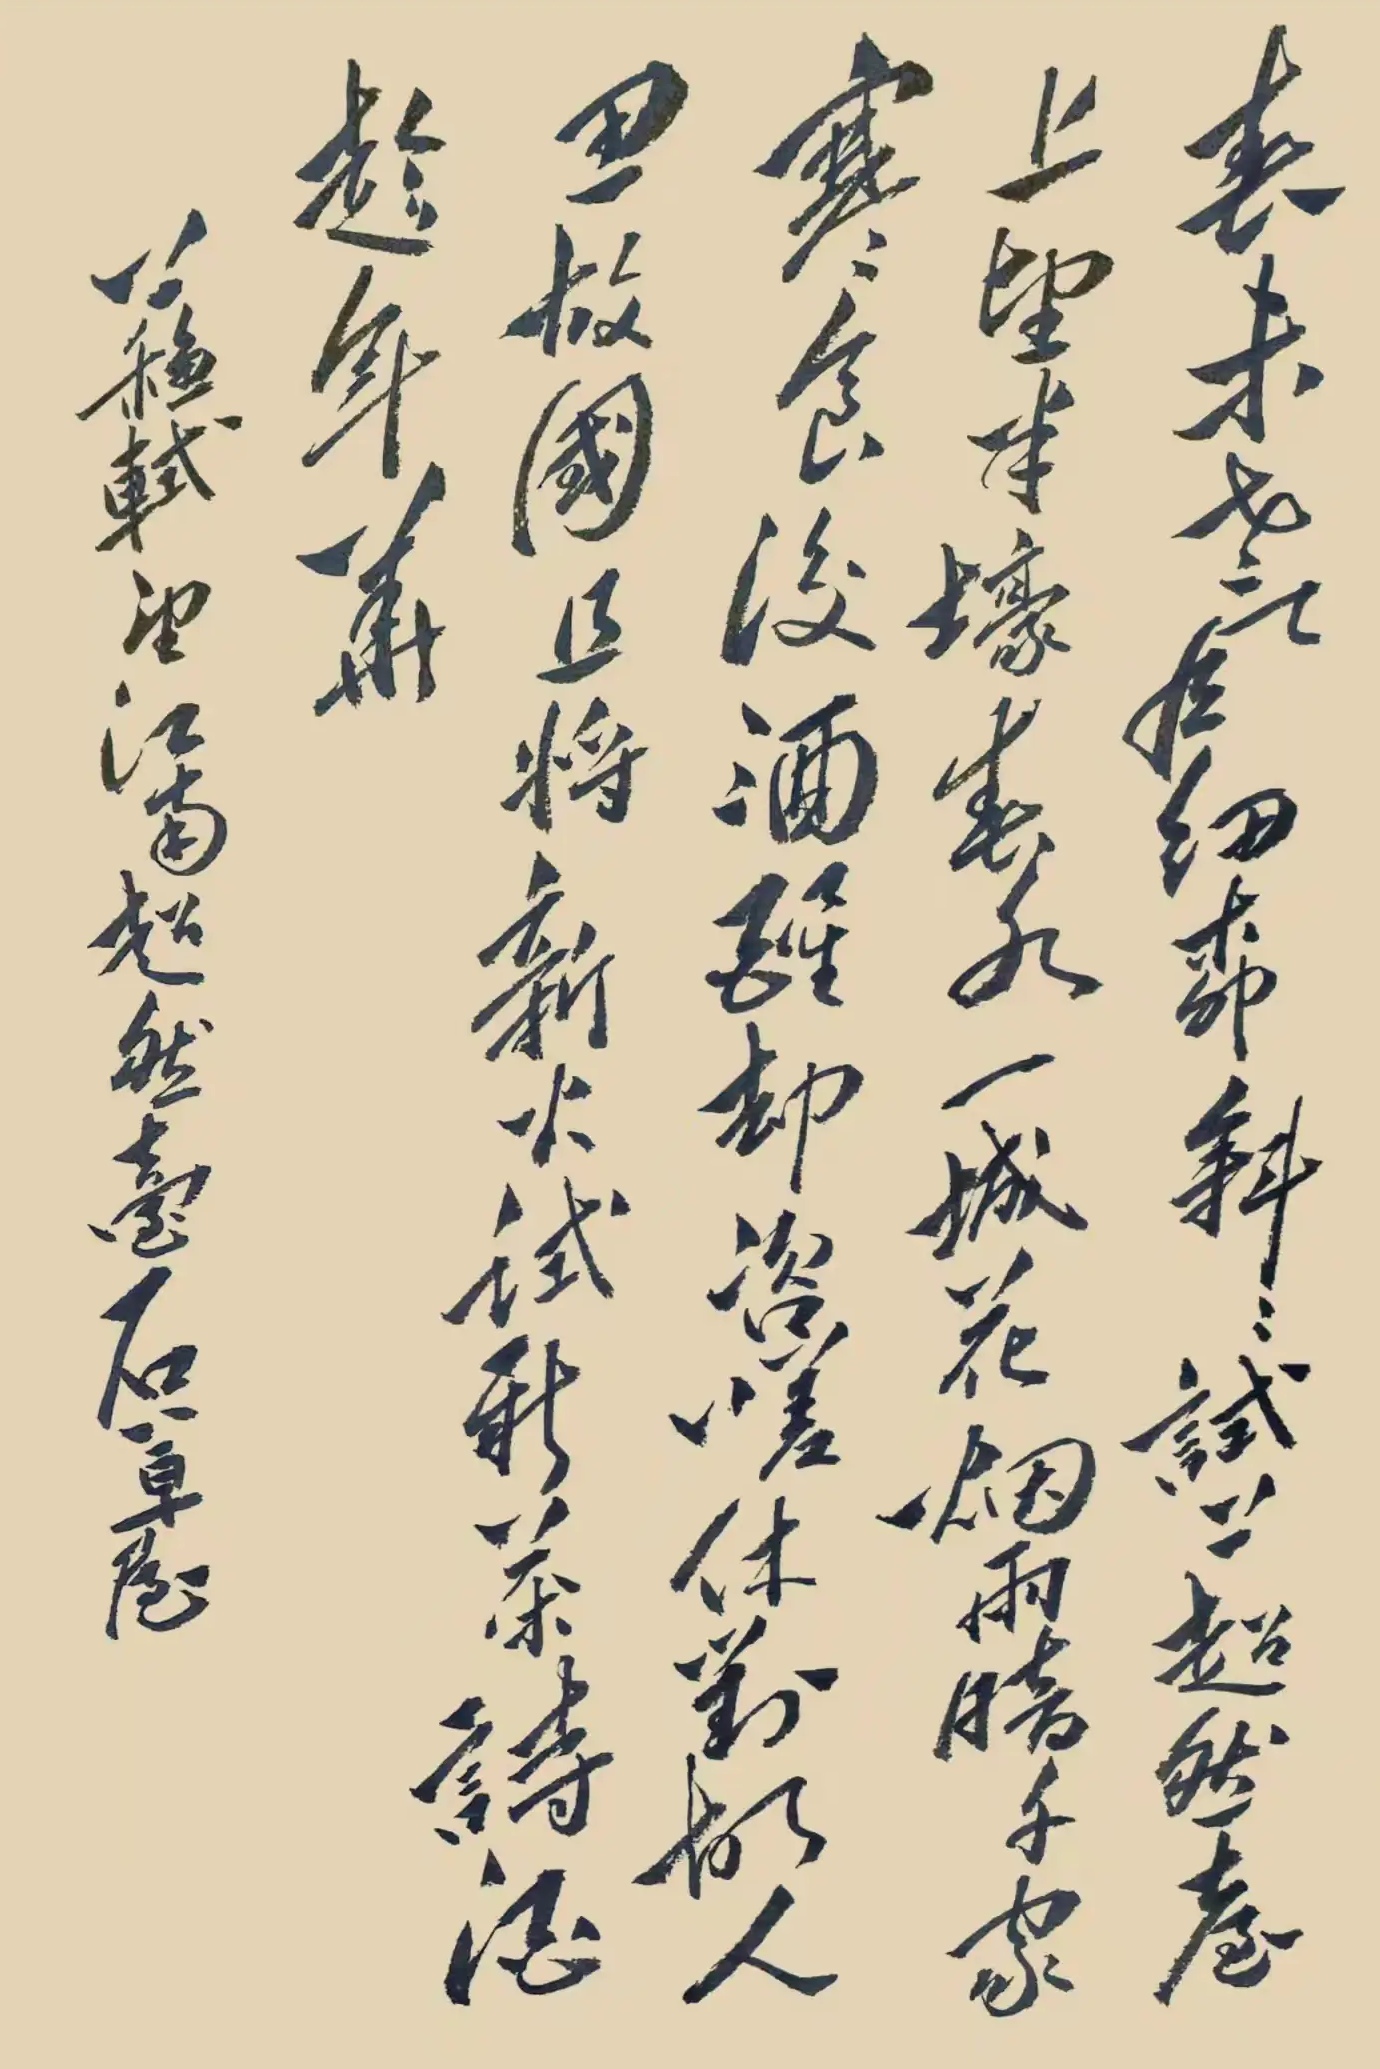 春未老風細柳斜斜試上超然臺
上望半壕春水一城花烟雨暗千家
寒食後酒醒却咨嗟休對故人
思故國且將新火試新茶詩酒
趁年華
蘇軾望江南超然臺石